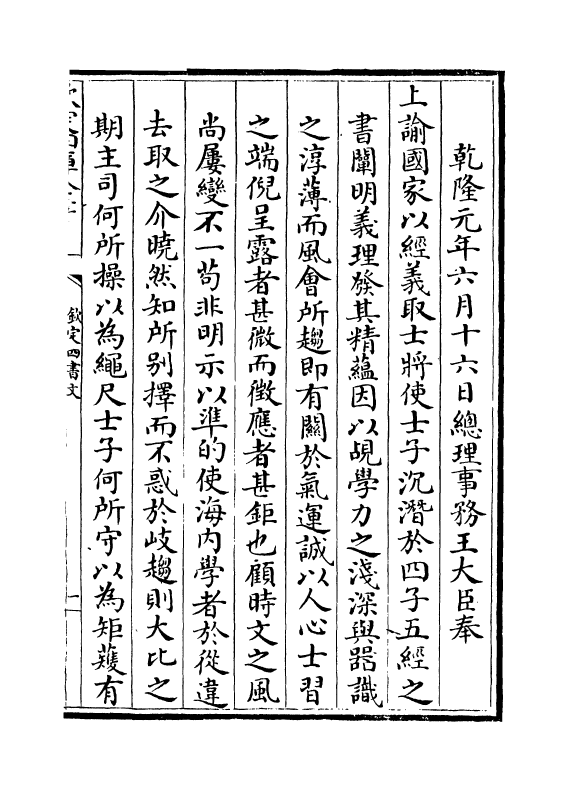 乾隆元年六月十六日總理事務王大臣奉
上諭國家以經義取士將使士子沉潛於四子五經之
書闡明義理發其精蘊因以覘學力之淺深與器識
之淳薄而風會所趨即有關於氣運誠以人心士習
之端倪呈露者甚微而徵應者甚鉅也顧時文之風
尚屢變不一苟非明示以準的使海内學者於從違
去取之介曉然知所别擇而不惑於岐趨則大比之
期主司何所操以為繩尺士子何所守以為矩矱有
欽定四書文
一